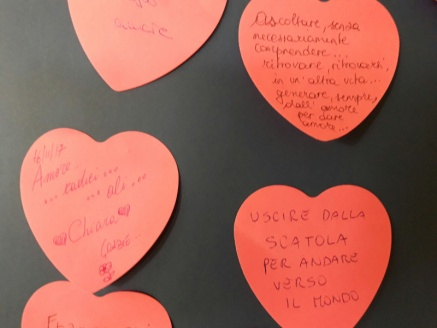 Ascoltare, senza
necessariamente
comprendere...
ritrovare, ritrovarsi,
in un'altra vita...
generare, sempre,
dall'amore
per dare
amore...
6/11/17
... radici ...
... ali ...
Chiara
GRAZIE...
USCIRE DALLA
SCATOLA
PER ANDARE
VERSO
IL MONDO